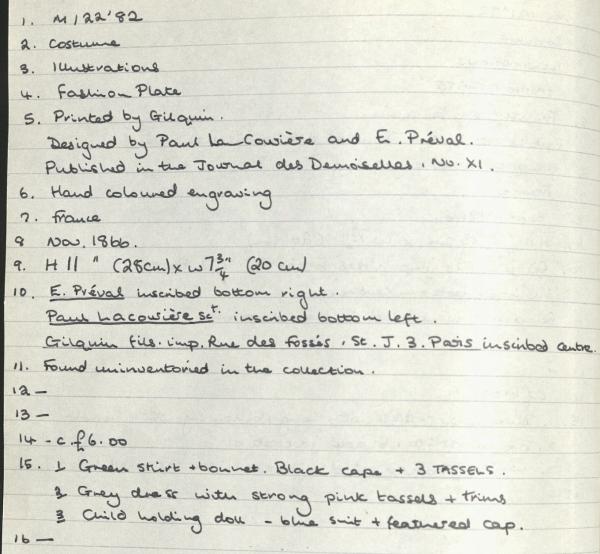 1. M122'82
2. Costume
3. Illustrations
4. Fashion Plate
5. Printed by Gilquin.
Designed by Paul La Couière and E. Préval.
Published in the Journal des Demoiselles, No. XI.
6. Hand coloured engraving
7. France
8 Nov. 1866.
9. H 11" (28cm) x W 7 3/4" (20 cm)
10. E. Préval inscribed bottom right.
Paul Lacouière sct. inscribed bottom left.
Gilquin fils. imp. Rue des Fossés, St. J. 3. Paris inscribed centre.
11. Found uninventoried in the collection.
12 —
13 —
14 - c. £6.00
15. 1 Green skirt + bonnet. Black cape + 3 TASSELS.
2 Grey dress with strong pink tassels + trims
3 Child holding doll - blue suit + feathered cap.
16 —